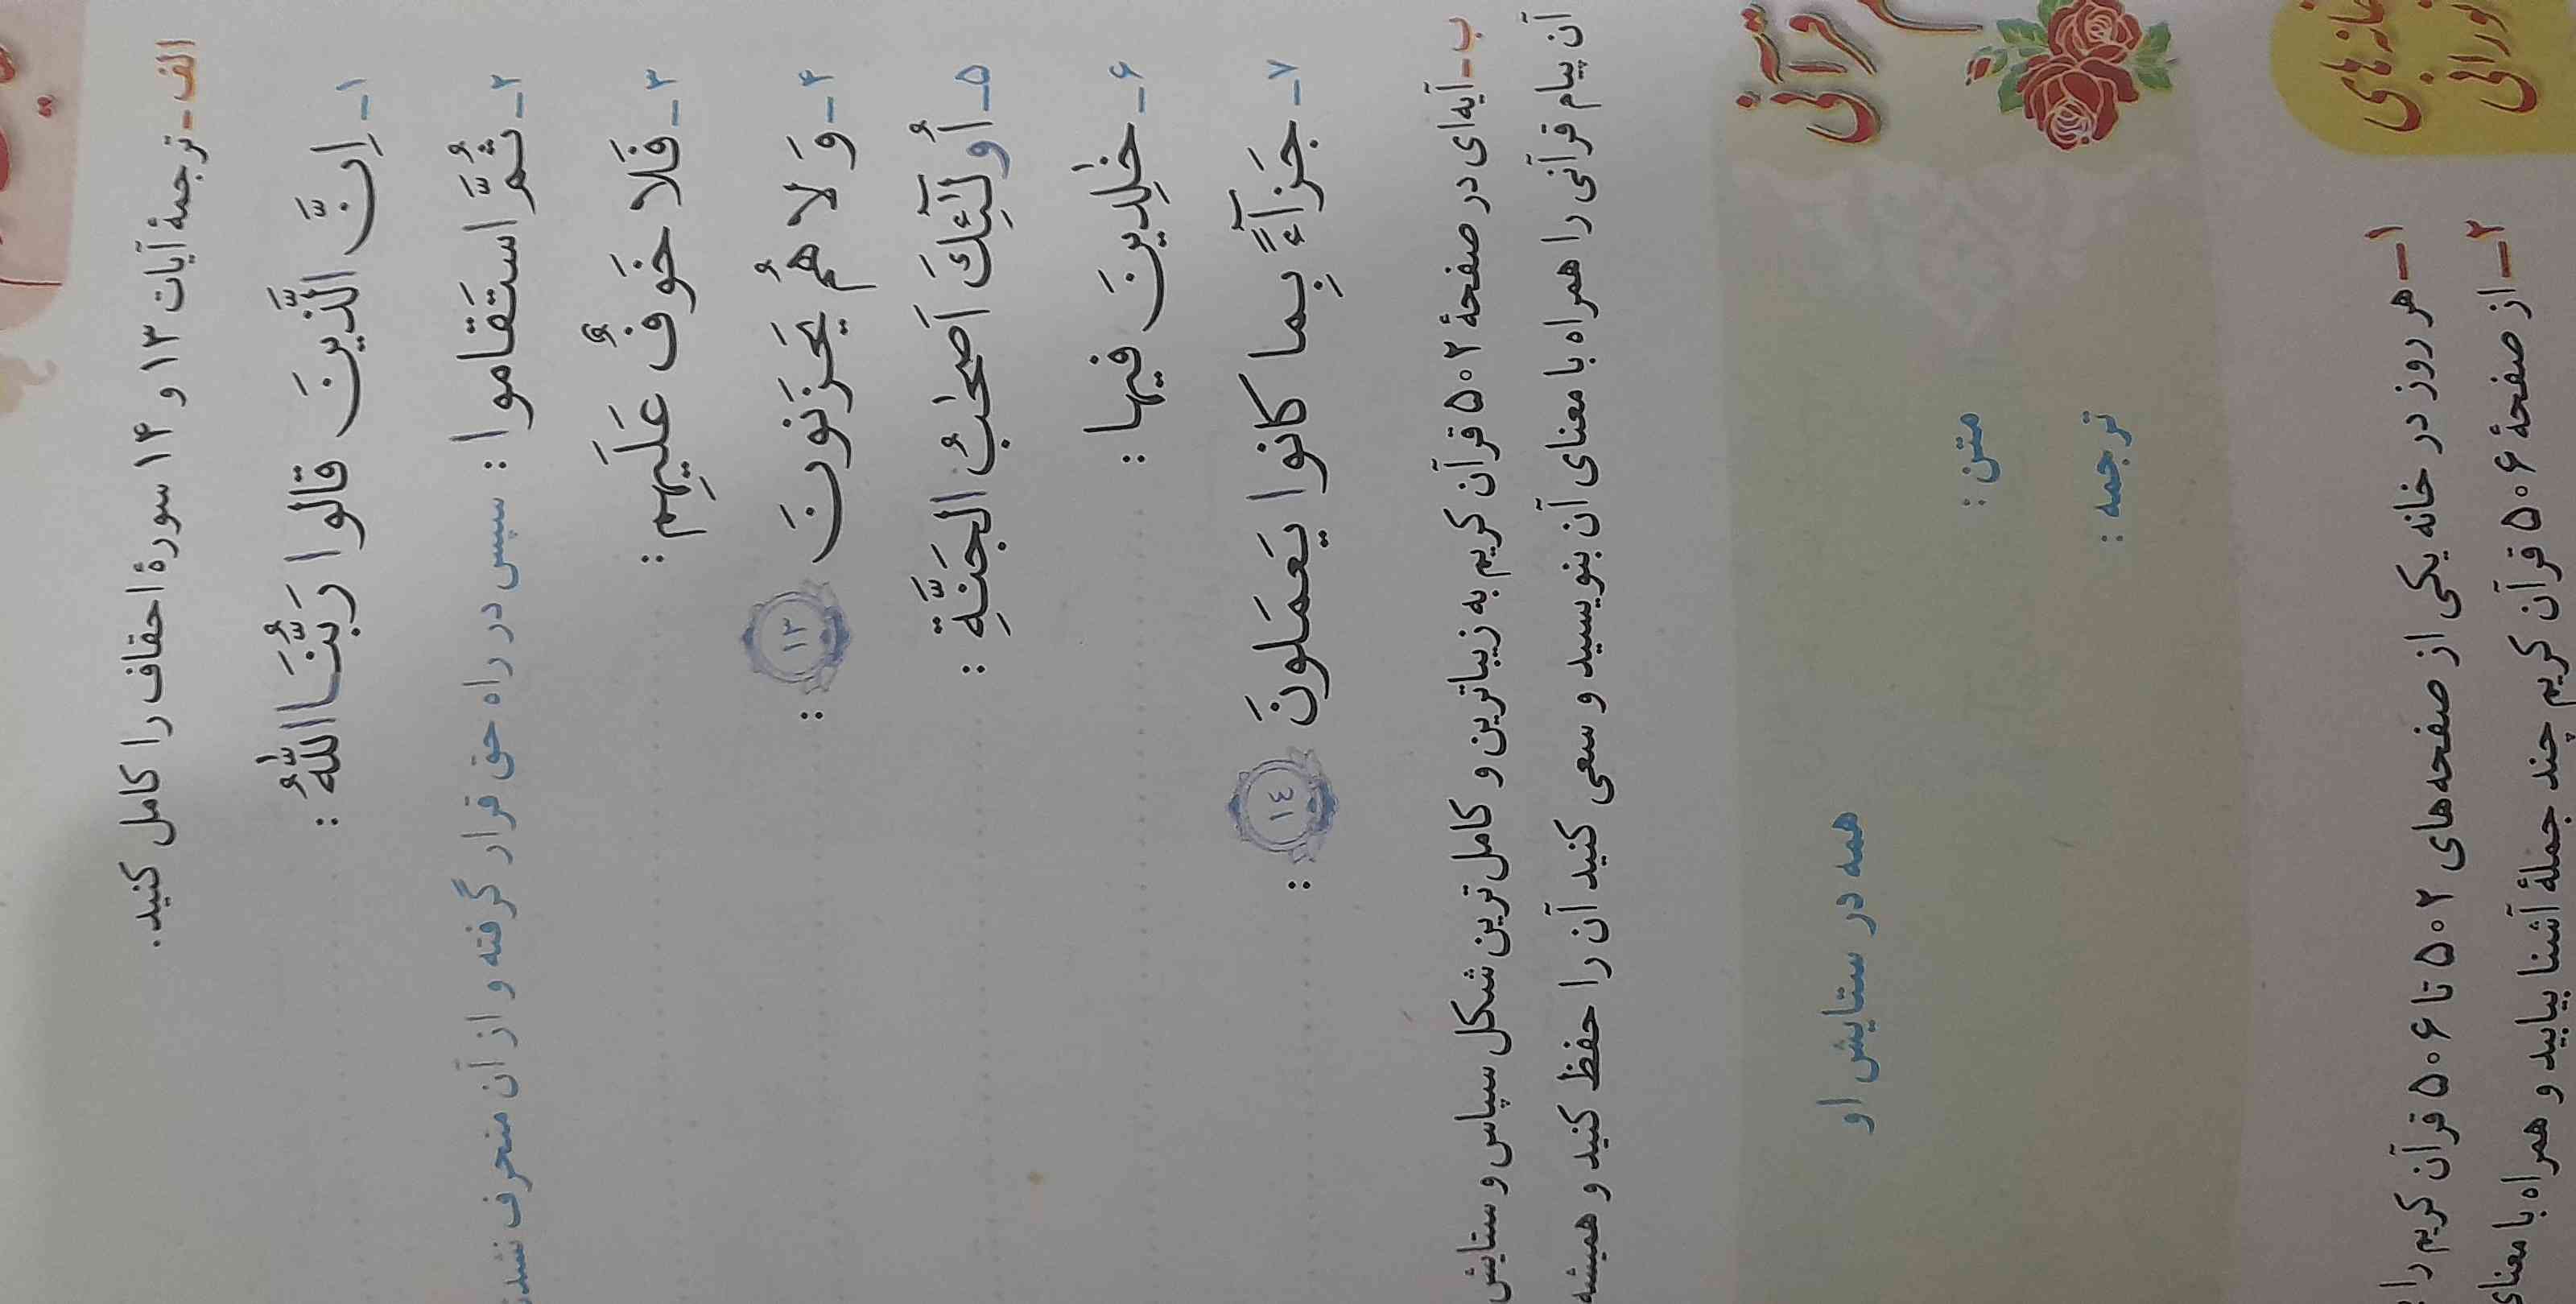 الف ـ ترجمهٔ آیات ۱۳ و ۱۴ سورهٔ احقاف را کامل کنید.
۱ـ اِنَّ الَّذینَ قالوا رَبُّنَا اللّٰهُ :
۲ـ ثُمَّ استَقاموا : سپس در راه حق قرار گرفته و از آن منحرف نشدن
۳ـ فَلا خَوفٌ عَلَیهِم :
۴ـ وَ لا هُم یَحزَنونَ ۱۳ :
۵ـ اُولٰٓئِکَ اَصحٰبُ الجَنَّةِ :
۶ـ خٰلِدینَ فیها :
۷ـ جَزآءً بِما کانوا یَعمَلونَ ١٤ :
ب ـ آیه‌ای در صفحهٔ ۵۰۲ قرآن کریم به زیباترین و کامل ترین شکل سپاس و ستایش
آن پیام قرآنی را همراه با معنای آن بنویسید و سعی کنید آن را حفظ کنید و همیشه
قرآنی
همه در ستایش او
متن :
ترجمه :
خانه‌های
نورانی
۱ـ هر روز در خانه یکی از صفحه‌های ۵۰۲ تا ۵۰۶ قرآن کریم را
۲ـ از صفحهٔ ۵۰۶ قرآن کریم چند جملهٔ آشنا بیابید و همراه با معنای